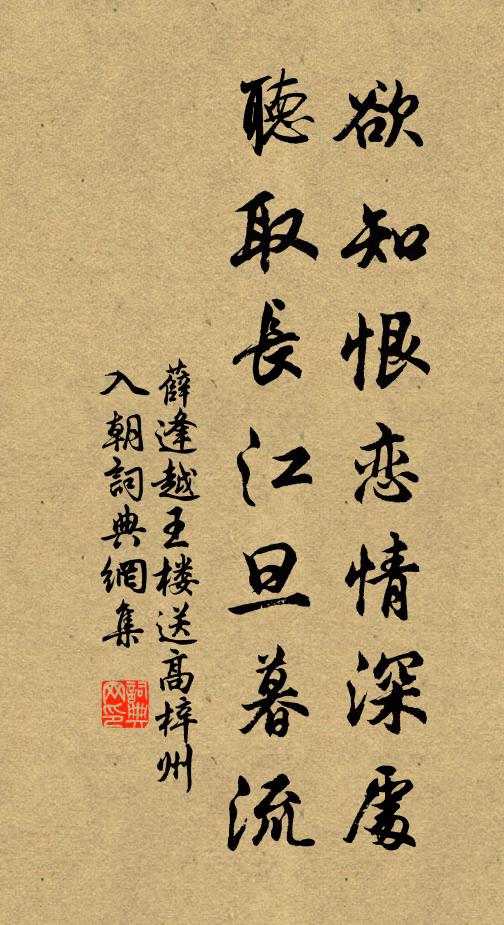 欲知恨恋情深處
聽取長江旦暮流
薛逢越王楼送高梓州
入朝詞典網集
詞典网印